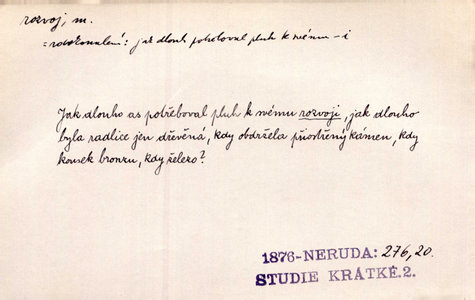 rozvoj, m.
= zdokonalení: jak dlouho potřeboval pluh k svému -i
Jak dlouho as potřeboval pluh k svému rozvoji, jak dlouho
byla radlice jen dřevěná, kdy obdržela přiostřený kámen, kdy
kousek bronzu, kdy železo?
1876-NERUDA: 276,20.
STUDIE KRÁTKÉ.2.